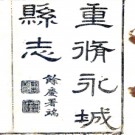 重脩永城
縣志
餘慶署耑